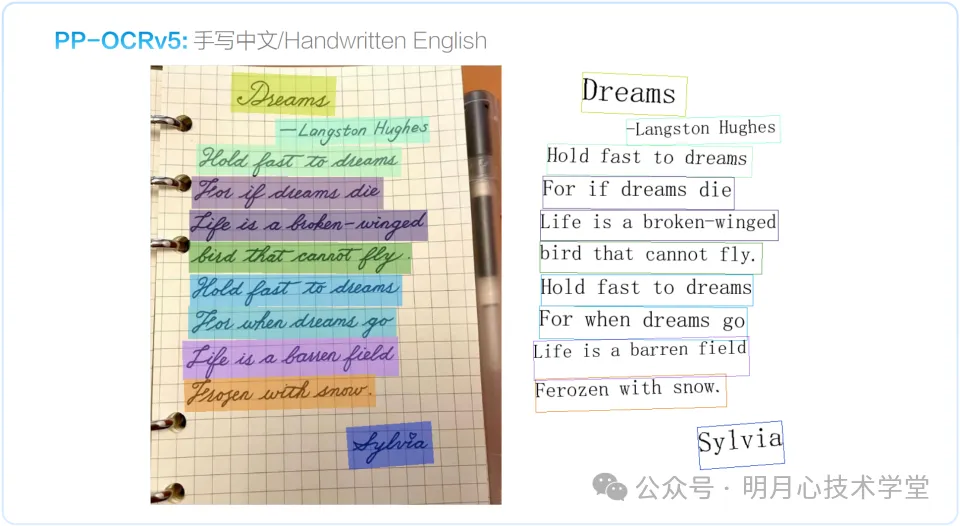 PP-OCRv5: 手写中文/Handwritten English
Dreams
—Langston Hughes
Hold fast to dreams
For if dreams die
Life is a broken-winged
bird that cannot fly.
Hold fast to dreams
For when dreams go
Life is a barren field
Frozen with snow.
Sylvia
Dreams
-Langston Hughes
Hold fast to dreams
For if dreams die
Life is a broken-winged
bird that cannot fly.
Hold fast to dreams
For when dreams go
Life is a barren field
Ferozen with snow.
Sylvia
公众号 · 明月心技术学堂